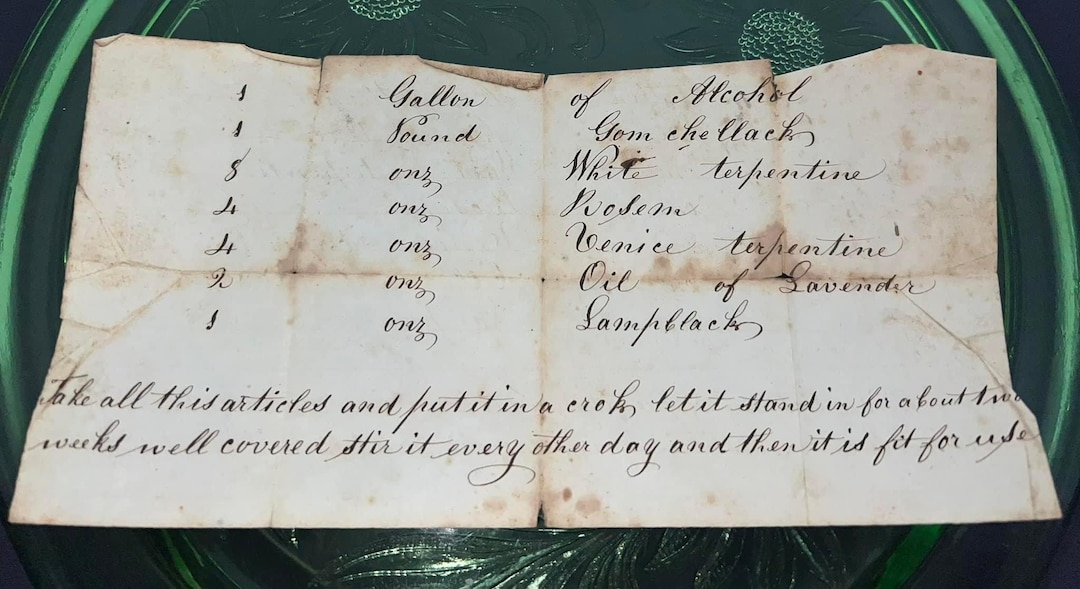 1 Gallon of Alcohol
1 Pound Gom chellack
8 onz White terpentine
4 onz Rosem
4 onz Venice terpentine
2 onz Oil of Lavender
1 onz Lampblack
Take all this articles and put it in a crok let it stand in for about two
weeks well covered stir it every other day and then it is fit for use